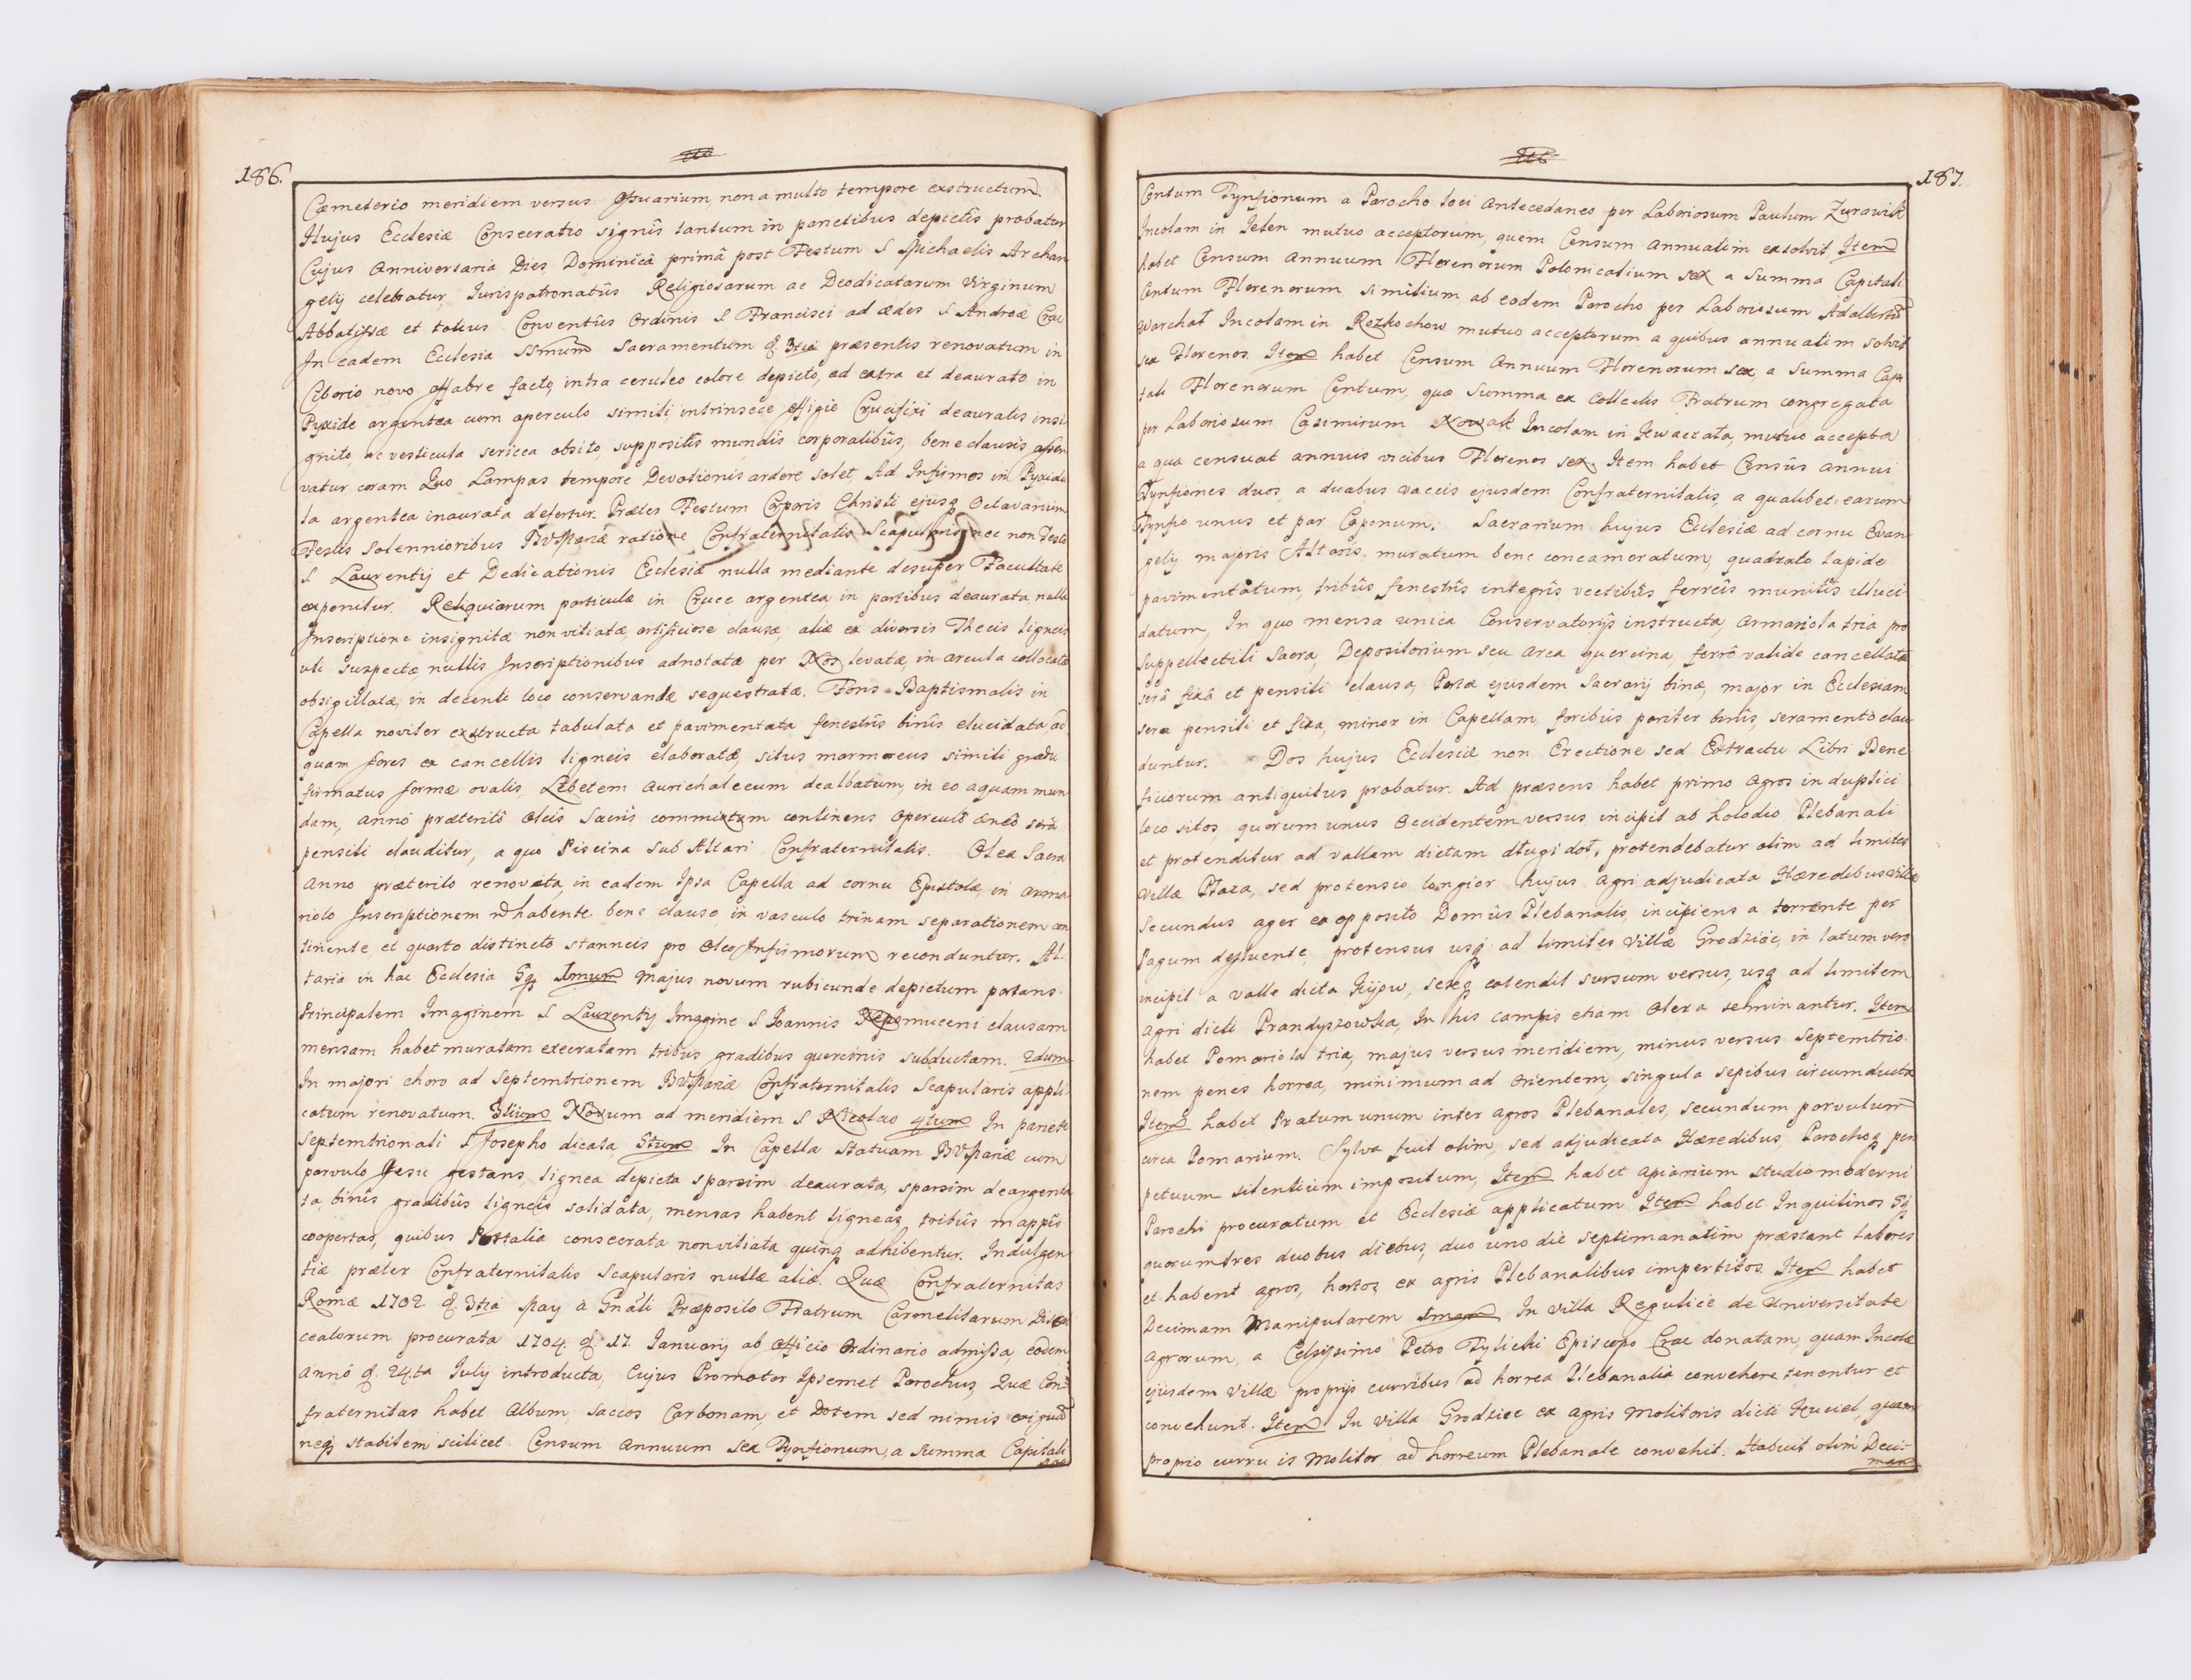 186.
Cæmeterio meridiem versus Ossuarium, non a multo tempore exstructum.
Hujus Ecclesiæ Consecratio signis tantum in parietibus depictis probatur
Cujus Anniversaria Dies Dominicâ primâ post Festum S Michaelis Archan
gelij celebratur, Jurispatronatûs Religiosarum ac Deodicatarum Virginum
Abbatissæ et totius Conventûs Ordinis S Francisci ad ædes S Andreæ Crac
In eadem Ecclesia SSmum Sacramentum d. 3tia præsentis renovatum in
Ciborio novo affabre facto, intra ceruleo colore depicto, ad extra et deaurato in
Pyxide argentea cum aperculo simili intrinsece effigie Crucifixi deauratis insi
gnito, ac vesticula sericea obsito, suppositis mundis corporalibûs, bene clausis asser
vatur coram Quo Lampas tempore Devotionis ardere solet, Ad Infirmos in Pyxidu
la argentea inaurata defertur. Præter Festum Corporis Christi ejusq Octavarium
Festis Solennioribus BVMariæ ratione Confraternitatis Scapularis, nec non Festo
S Laurentij et Dedicationis Ecclesiæ nulla mediante desuper Facultate
exponitur. Reliquiarum particulæ in Cruce argentea in partibus deaurata, nulla
Inscriptione insignitæ non vitiatæ, artificiose clausæ, aliæ ex diversis Thecis ligneis
uti suspectæ nullis Inscriptionibus adnotatæ per Nos levatæ, in arcula collocatæ
obsigillatæ, in decenti loco conservandæ sequestratæ. Fons Baptismalis in
Capella noviter exstructa tabulata et pavimentata fenestris binis elucidata, ad
quam fores ex cancellis ligneis elaboratæ, situs marmoreus simili gradu
firmatus formæ ovalis, Lebetem aurichalceum dealbatum, in eo aquam mun
dam, annô præteritô Oleis Sacris commixtam continens Operculô æneô serâ
pensili clauditur, a quo Piscina sub Altari Confraternitatis. Olea Sacra
Anno præterito renovata, in eadem Ipsa Capella ad cornu Epistolæ, in arma
riolo Inscriptionem habente bene clauso in vasculo trinam separationem con
tinente, et quarto distincto stanneis pro Oleo Infirmorum reconduntur. Al
taria in hac Ecclesia 5q 1mum Majus novum rubicunde depictum portans
Principalem Imaginem S Laurentij Imagine S Joannis Nepomuceni clausam
mensam habet muratam execratam tribus gradibus quercinis subductam. 2dum
In majori choro ad Septemtrionem BVMariæ Confraternitatis Scapularis appli
catum renovatum. 3tium Novum ad meridiem S Nicolao 4tum In pariete
Septemtrionali S Josepho dicata, 5tum In Capella Statuam BVMariæ cum
parvulo Jesu gestans, lignea depicta sparsim deaurata, sparsim deargenta
ta, binis gradibûs ligneis solidata, mensas habent ligneas, tribûs mappis
coopertas, quibus Portalia consecrata non vitiata quinq adhibentur. Indulgen
tiæ præter Confraternitatis Scapularis nullæ aliæ. Quæ Confraternitas
Romæ 1702. d. 3tia May a Gnali Præposito Fratrum Carmelitarum Discal
ceatorum procurata 1704. d. 17 Januarij ab Officio Ordinario admissa, eodem
Annô d. 24.ta July introducta, Cujus Promotor Ipsemet Parochus, Quæ Con
fraternitas habet Album, Saccos Carbonam, et Dotem sed nimis exiguam
neq stabilem scilicet Censum annuum sex Tynfionum, a Summa Capitali
187.
Centum Tynfionum a Parocho loci Antecedaneo per Laboriosum Paulum Zurawik
Incolam in Jelen mutuo acceptorum, quem Censum annuatim exsolvit, Item
habet Censum Annuum Florenorum Polonicalium sex a Summa Capitali
Centum Florenorum similium, ab eodem Parocho per Laboriosum Adalbertum
Warchał Incolam in Rozkochow mutuo acceptorum a quibus annuatim solvit
sex Florenos. Item habet Censum Annuum Florenorum sex, a Summa Capi
tali Florenorum Centum, quæ Summa ex Collectis Fratrum congregata
per Laboriosum Casimirum Nowak Incolam in Kwaczała, mutuo accepta
a qua censuat annuis vicibus Florenos sex. Item habet Censûs annui
Tynfiones duos, a duabus vaccis ejusdem Confraternitatis, a qualibet earum
Tynfio unus et par Caponum. Sacrarium hujus Ecclesiæ ad cornu Evan
gelij majoris Altaris. muratum bene concameratum, quadrato lapide
pavimentatum, tribûs fenestris integris vectibûs ferreis munitis elluci
datum, In quo mensa unica Conservatorijs instructa, Armariola tria pro
suppellectili Sacra, Depositorium seu Arca quercina, ferrô valide cancellata
serâ fixâ et pensili clausa, Portæ ejusdem Sacrarij binæ, major in Ecclesiam
sera pensili et fixa, minor in Capellam, foribûs pariter binis, seramentô clau
duntur. Dos hujus Ecclesiæ non Erectione sed Extractu Libri Bene
ficiorum antiquitus probatur. Ad præsens habet primo Agros in duplici
loco sitos, quorum unus Occidentem versus, incipit ab holodio Plebanali
et protenditur ad vallem dictam długi doł, protendebatur olim ad limites
Villæ Płaza, sed protensio longior hujus agri adjudicata Hæredibus Villæ
Secundus ager ex opposito Domûs Plebanalis, incipiens a torrente per
Pagum defluente, protensus usq ad limites Villæ Grodziec, in latum vero
incipit a valle dicta Kijow, seseq extendit sursum versus, usq ad limitem
agri dicti Prandyszowska, In his campis etiam olera seminantur. Item
habet Pomariola tria, majus versus meridiem, minus versus Septemtrio
nem penes horrea, minimum ad Orientem, singula sepibus circumducta
Item habet Pratum unum inter Agros Plebanales, secundum parvulum
circa Pomarium. Sylva fuit olim, sed adjudicata Hæredibus, Parochoq per
petuum silentium impositum, Item habet Apiarium studio moderni
Parochi procuratum et Ecclesiæ applicatum Item habet Inquilinos 5q
quorum tres duobus diebus, duo uno die septimanatim præstant labores
et habent agros, hortosq ex agris Plebanalibus impertitos. Item habet
Decimam Manipularem 1mam In Villa Regulice de Universitate
Agrorum, a Celsissimo Petro Tylicki Episcopo Crac donatam, quam Incolæ
ejusdem Villæ proprijs curribus ad horrea Plebanalia convehere tenentur et
convehunt. Item In Villa Grodziec ex Agris Molitoris dicti Kuciel, quam
proprio curru is Molitor ad horreum Plebanale convehit. Habuit olim Deci-
mam